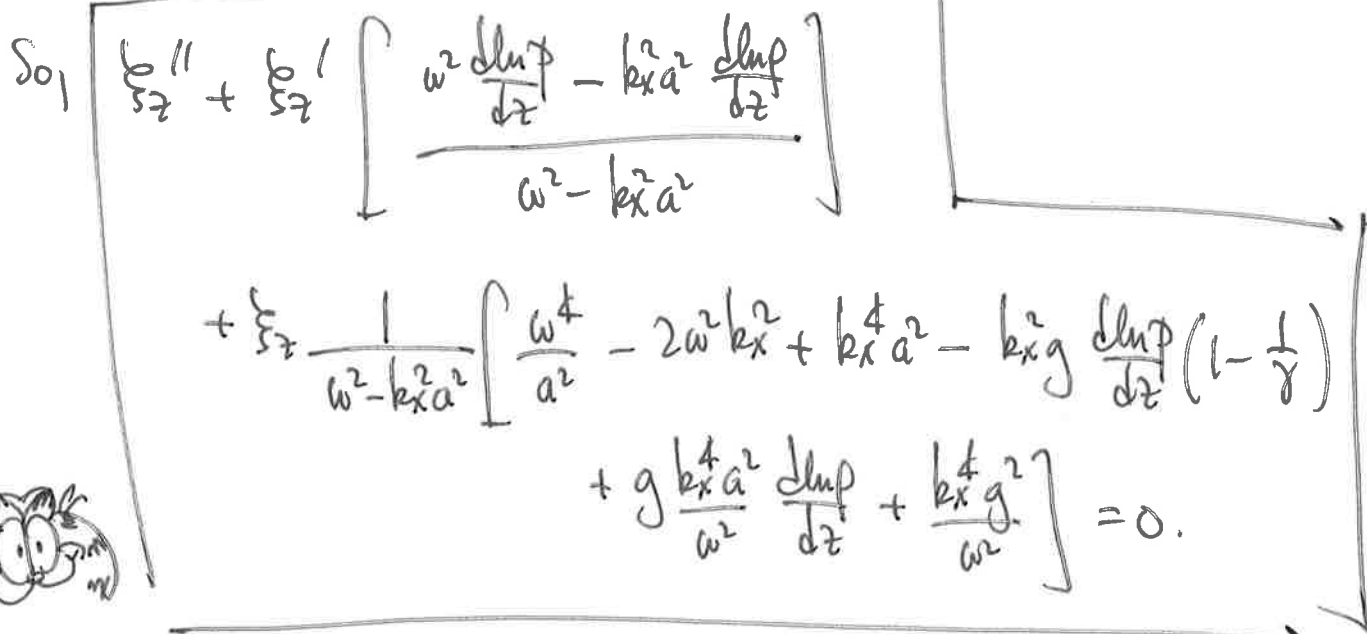 So, ξz'' + ξz' [ (ω² dlnp/dz − kx²a² dlnρ/dz) / (ω² − kx²a²) ]
+ ξz 1/(ω² − kx²a²) [ ω⁴/a² − 2ω²kx² + kx⁴a² − kx²g dlnp/dz (1 − 1/γ)
+ g kx⁴a²/ω² dlnρ/dz + kx⁴g²/ω² ] = 0.